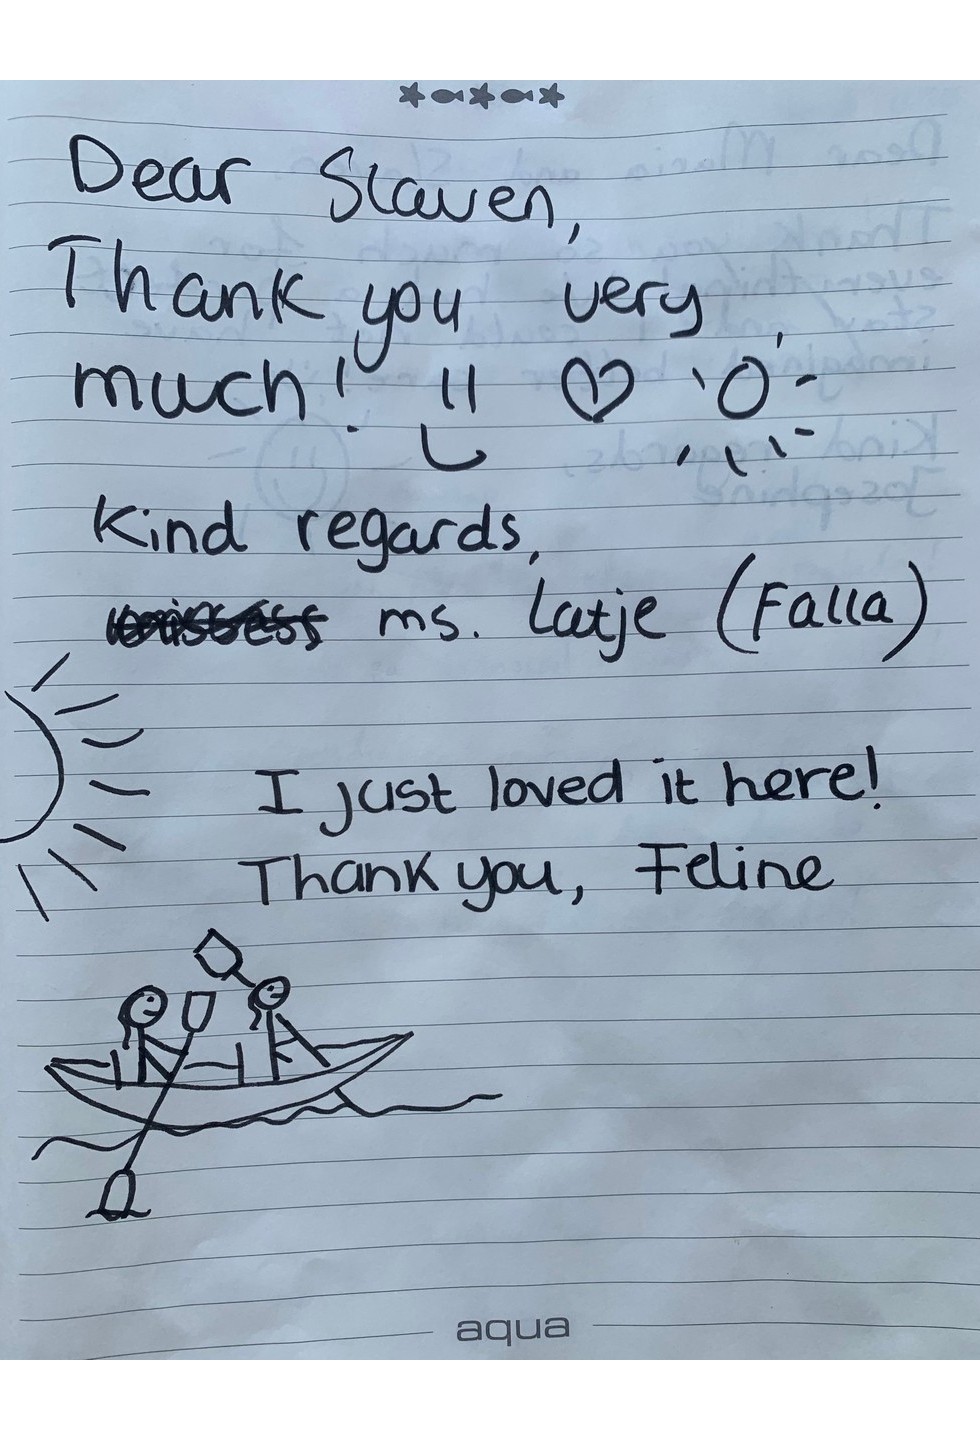 Dear Slaven,
Thank you very
much!
Kind regards,
ms. Latje (Falla)
I just loved it here!
Thank you, Feline
aqua